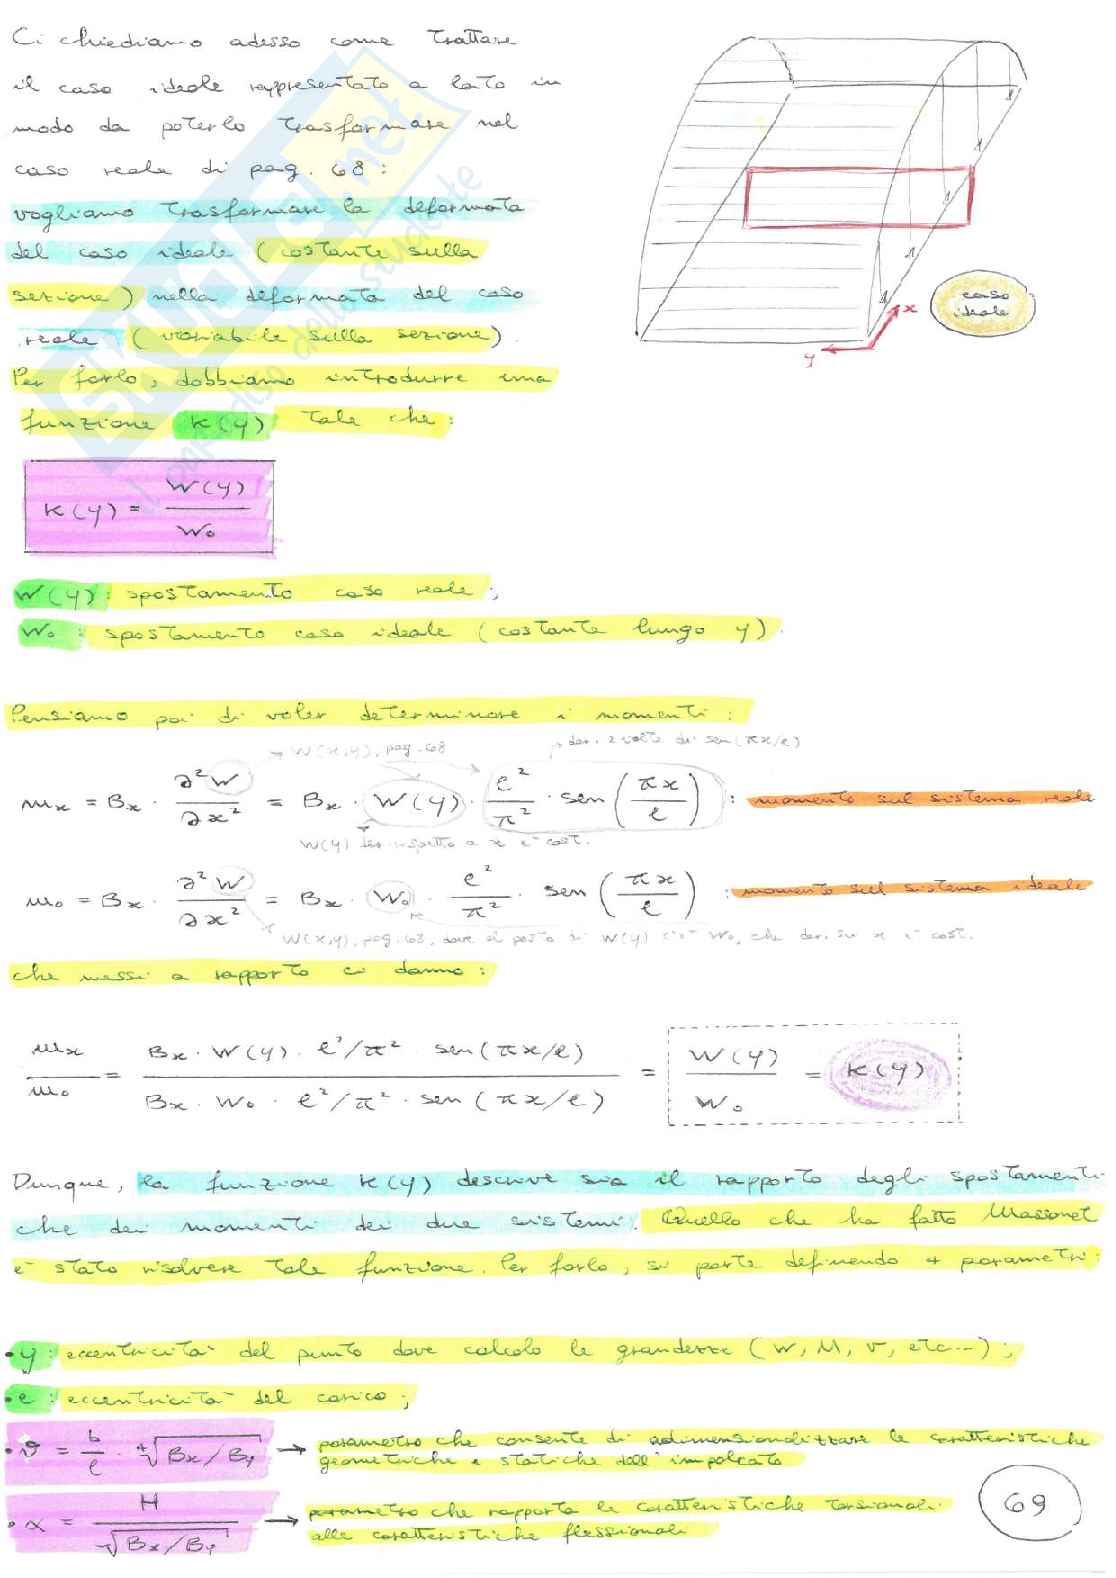 Ci chiediamo adesso come trattare
il caso ideale rappresentato a lato in
modo da poterlo trasformare nel
caso reale di pag. 68:
vogliamo trasformare la deformata
del caso ideale (costante sulla
sezione) nella deformata del caso
reale (variabile sulla sezione).
Per farlo, dobbiamo introdurre una
funzione K(y) tale che:
caso
ideale
x
y
K(y) = W(y) / W₀
W(y): spostamento caso reale;
W₀: spostamento caso ideale (costante lungo y).
Pensiamo poi di voler determinare i momenti:
→ W(x,y), pag. 68
der. 2 volte di sen(πx/ℓ)
mx = Bx · ∂²W/∂x² = Bx · W(y) · ℓ²/π² · sen(πx/ℓ) : momento sul sistema reale
W(y) der. rispetto a x è cost.
m₀ = Bx · ∂²W/∂x² = Bx · W₀ · ℓ²/π² · sen(πx/ℓ) : momento sul sistema ideale
W(x,y), pag. 68, dove al posto di W(y) c'è W₀, che der. su x è cost.
che messi a rapporto ci danno:
mx/m₀ = Bx · W(y) · ℓ²/π² · sen(πx/ℓ) / Bx · W₀ · ℓ²/π² · sen(πx/ℓ) = W(y)/W₀ = K(y)
Dunque, la funzione K(y) descrive sia il rapporto degli spostamenti
che dei momenti dei due sistemi. Quello che ha fatto Massonet
è stato risolvere tale funzione. Per farlo, si parte definendo 4 parametri:
• y: eccentricità del punto dove calcolo le grandezze (W, M, V, etc...);
• e: eccentricità del carico;
• ϑ = b/ℓ · ∜(Bx/By) → parametro che consente di adimensionalizzare le caratteristiche
geometriche e statiche dell'impalcato
• α = H / √(Bx/By) → parametro che rapporta le caratteristiche torsionali
alle caratteristiche flessionali
69